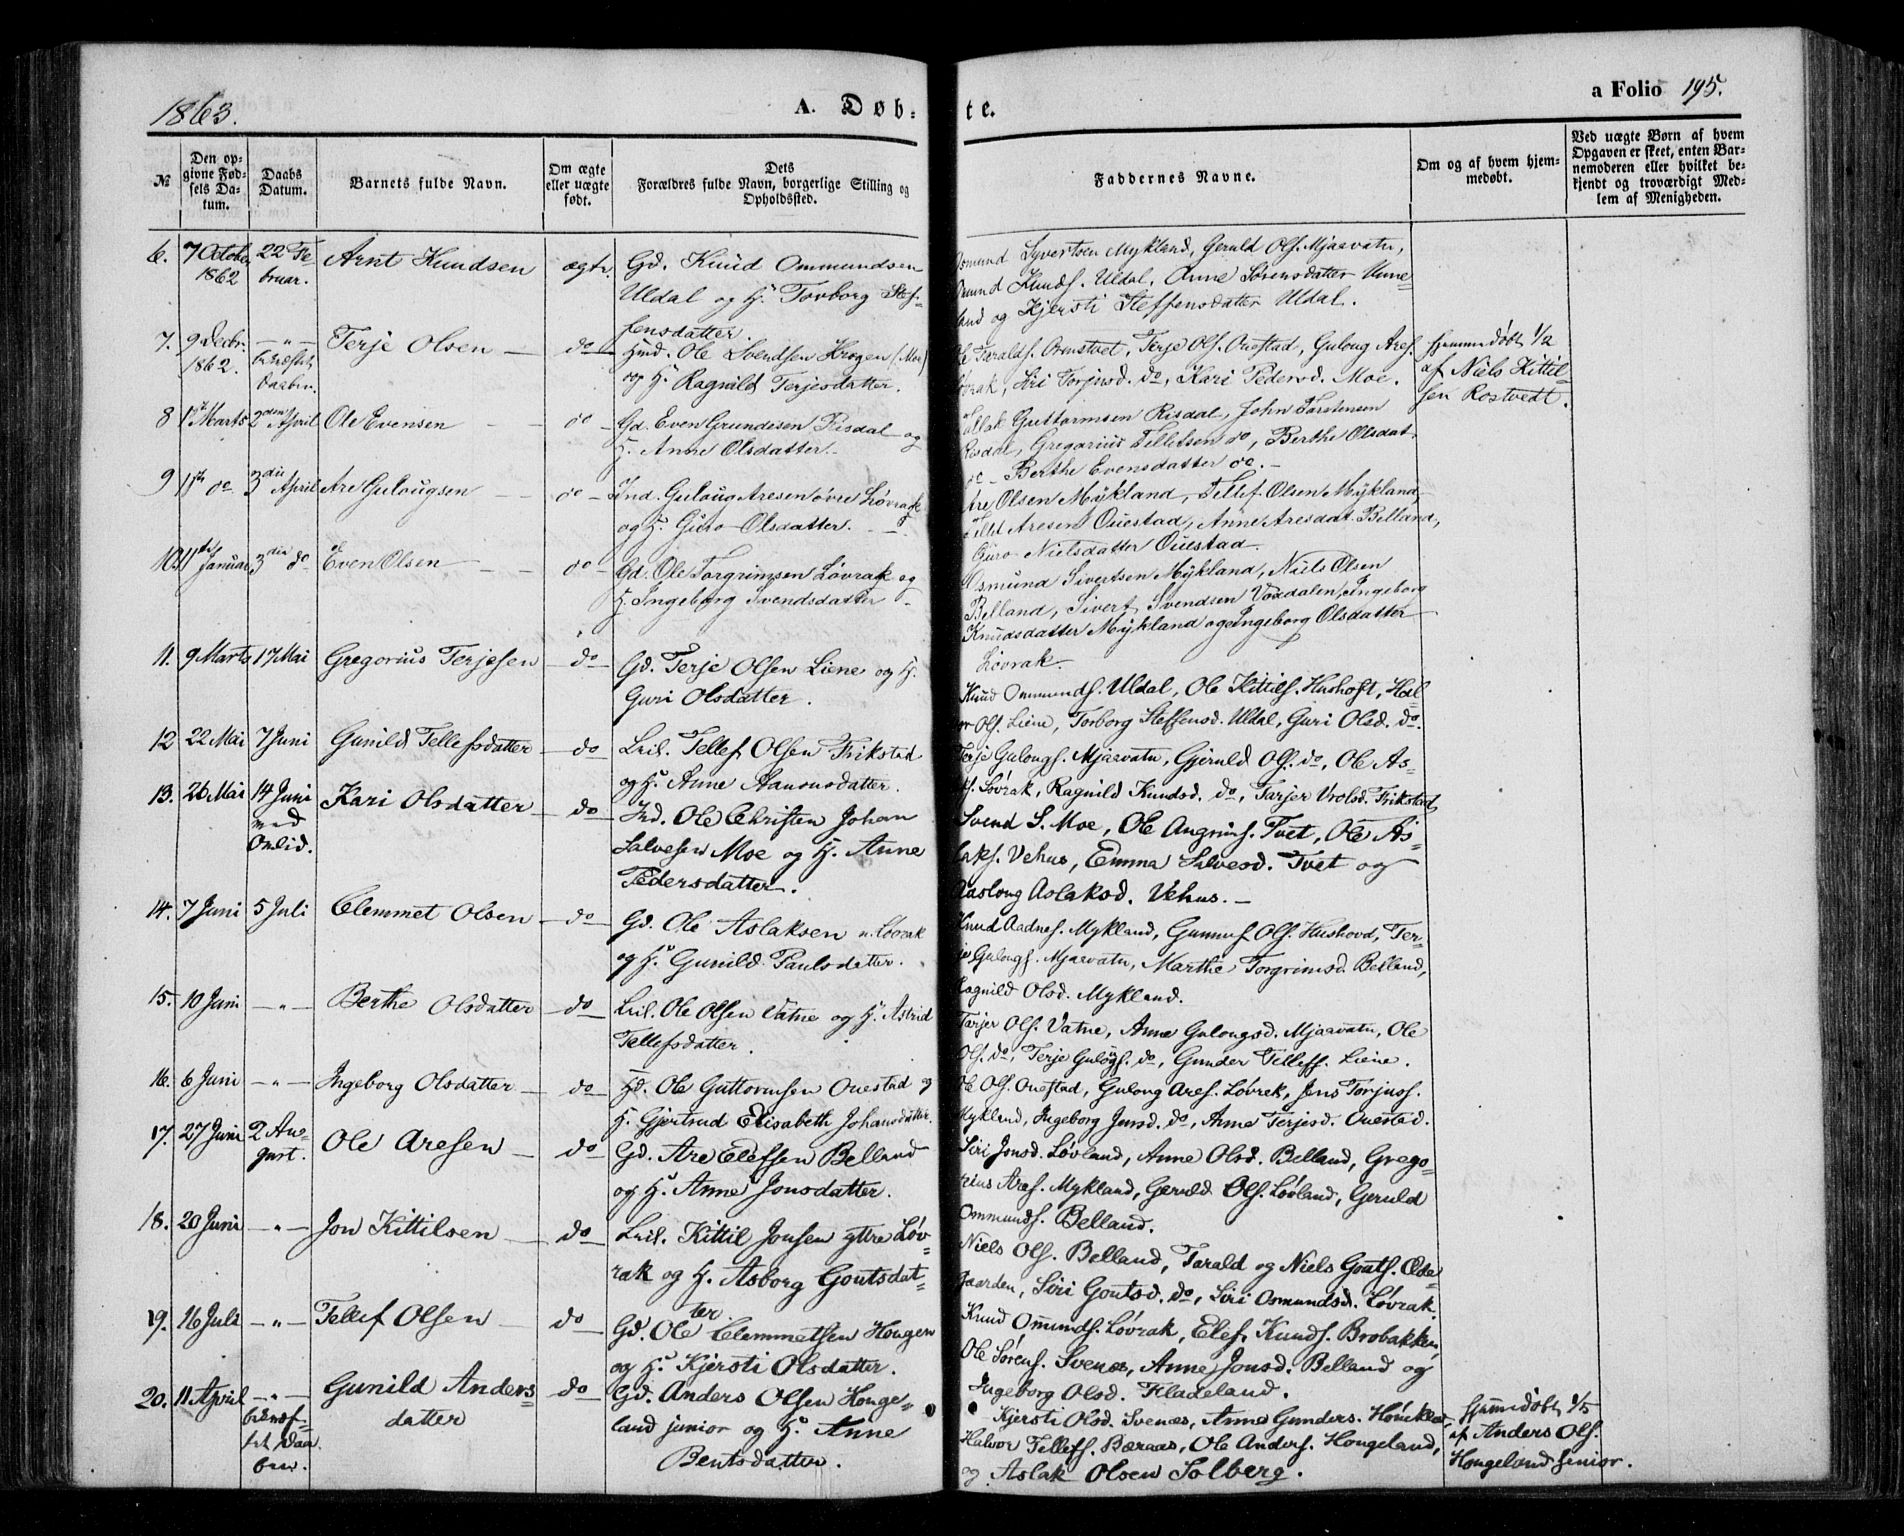 1863.
A. Døb-
te.
a Folio 195.
№
Den op-
givne Fød-
sels Da-
tum.
Daabs
Datum.
Barnets fulde Navn.
Om ægte
eller uægte
født.
Dets
Forældres fulde Navn, borgerlige Stilling og
Opholdssted.
Faddernes Navne.
Om og af hvem hjem-
medøbt.
Ved uægte Børn af hvem
Opgaven er skeet, enten Bar-
nemoderen eller hvilket be-
kjendt og troværdigt Med-
lem af Menigheden.
6. 7 October 22 Fe- Arnt Knudsen ægte. Gd. Knud Ommundsen
1862 bruar. Uldal og H. Torborg Stef-
fensdatter.
Osmund Syvertsen Mykland, Geruld Ols. Mjaavatn,
Omund Knuds. Uldal, Anne Sørensdatter Unne-
land og Kjersti Steffensdatter Uldal.
7. 9 Decbr. — " — Terje Olsen — do — Hmd. Ole Svendsen Krogen (Moe)
1862. bekræftet og H. Ragnild Terjesdatter.
Daaben.
Ole Taralds. Ornstvet, Terje Ols. Ouestad, Guloug Ares.
Løvrak, Siri Torjusd. do, Kari Pedersd. Moe.
Hjemmedøbt 1/2
af Niels Kittil-
sen Rostvedt.
8 1st Marts 2den April Ole Evensen — do — Gd. Even Grundesen Risdal og
H. Anne Olsdatter.
Tellak Guttormsen Risdal, John Torstensen
Risdal, Gregarius Tellefsen do, Berthe Olsdat.
do — Berthe Evensdatter do. —
9 11th do 3die April Are Gulougsen — do — Ind. Guloug Aresen øvre Løvrak
og H. Guro Olsdatter. —
Are Olsen Mykland, Tellef Olsen Mykland,
Tellef Aresen Ouestad, Anne Aresdat. Belland,
Guro Nielsdatter Ouestad.
10 11te Januar 3die do Even Olsen — do — Gd. Ole Torgrimsen Løvrak og
H. Ingeborg Svendsdatter —
Osmund Sivertsen Mykland, Niels Olsen
Belland, Sivert Svendsen Vaxdalen, Ingeborg
Knudsdatter Mykland og Ingeborg Olsdatter
Løvrak.
11. 9 Marts 17 Mai Gregorius Terjesen — do — Gd. Terje Olsen Liene og H.
Guri Olsdatter.
Knud Ommunds. Uldal, Ole Kittils. Hushoft, Hal-
vor Ols. Liene, Torborg Steffensd. Uldal, Guri Olsd. do.
12 22 Mai 7 Juni Gunild Tellefsdatter — do Lril. Tellef Olsen Frikstad
og H. Anne Aanonsdatter.
Terje Gulougs. Mjaavatn, Gjeruld Ols. do, Ole As-
l. Løvrak, Ragnild Knudsd. do, Tarjer Vrolsd. Frikstad
13. 26 Mai 14 Juni Kari Olsdatter — do — Ind. Ole Christen Johan
ved Salvesen Moe og H. Anne
Omlid. Pedersdatter.
Svend S. Moe, Ole Angrims. Tvet, Ole As-
laks. Vehus, Emma Salvesd. Tvet og
Aasloug Aslaksd. Vehus. —
14. 7 Juni 5 Juli Clemmet Olsen — do — Gd. Ole Aslaksen n. Løvrak
og H. Gunild Paulsdatter.
Knud Aadnes. Mykland, Gunnuf Ols. Hushovd, Ter-
je Gulougs. Mjaavatn, Marthe Torgrimsd. Belland,
Ragnild Olsd. Mykland.
15. 10 Juni — " — Berthe Olsdatter — do — Lril. Ole Olsen Vatne og H. Astrid
Tellefsdatter.
Tarjer Ols. Vatne, Anne Gulougsd. Mjaavatn, Ole
Ols. do, Terje Gulougs. do, Gunder Tellefs. Liene.
16. 6 Juni — " — Ingeborg Olsdatter — do — Hd. Ole Guttormsen Ouestad og
H. Gjertrud Elisabeth Johansdatter.
Ole Ols. Ouestad, Guloug Ares. Løvrak, Jens Torjuss.
Mykland, Ingeborg Jensd. do, Anne Terjesd. Ouestad.
17. 27 Juni 2 Au- Ole Aresen — do — Gd. Are Elefsen Belland
gust. og H. Anne Jonsdatter.
Siri Jonsd. Løvland, Anne Olsd. Belland, Grego-
rius Ares. Mykland, Geruld Ols. Løvland, Geruld
Ommunds. Belland.
18. 20 Juni — " — Jon Kittilsen — do — Lril. Kittil Jonsen yttre Løv-
rak og H. Asborg Goutsdat-
ter
Niels Ols. Belland, Tarald og Niels Gouts. Øde-
gaarden, Siri Goutsd. do, Siri Osmundsd. Løvrak.
19. 16 Juli — " — Tellef Olsen — do — Gd. Ole Clemmetsen Hougen
og H. Kjersti Olsdatter.
Knud Omunds. Løvrak, Elef Knuds. Brobakken,
Ole Sørens. Svenes, Anne Jonsd. Belland og
Ingeborg Olsd. Fladeland.
20. 11 April — " — Gunild Anders- do — Gd. Anders Olsen Honge-
bekræf- datter land junior og H. Anne
tet Daa- Bentsdatter.
ben.
Kjersti Olsd. Svenes, Anne Gunders.
Halvor Tellefs. Baraas, Ole Anders. Hongeland,
og Aslak Olsen Solberg.
Hjemmedøbt 1/5
af Anders Ols.
Hongeland senior.